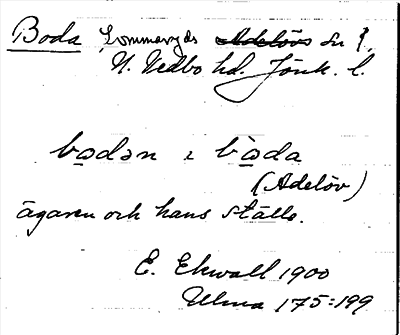 Boda Lommaryds ~~Adelövs~~ sn
N. Vedbo hd. Jönk. l.
bo̲dən ı bo̲̊da
(Adelöv)
ägaren och hans ställe.
E. Ekwall 1900
Ulma 175:199